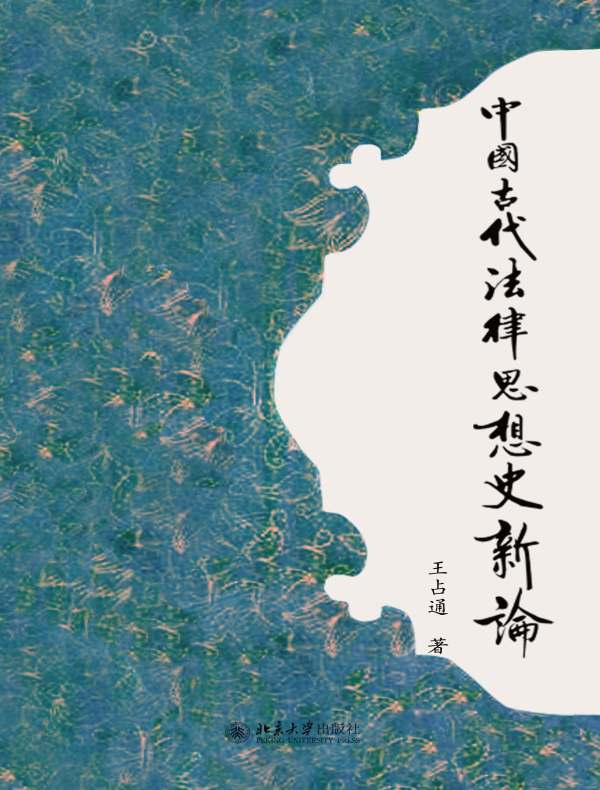 中國古代法律思想史新論
王占通 著
北京大学出版社
PEKING UNIVERSITY PRESS